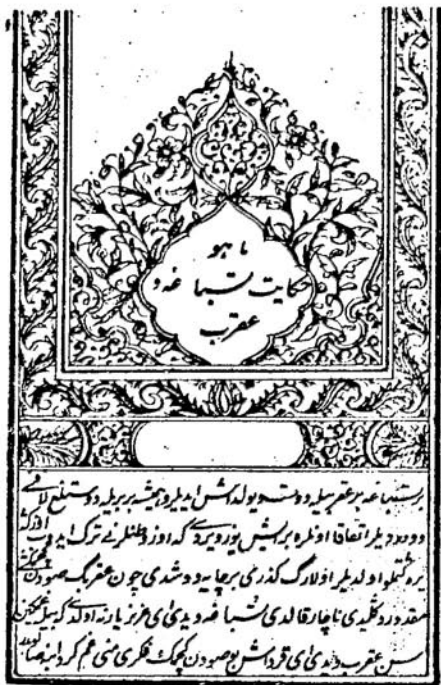 یا هو
حکایت تسباغه و
عقرب
بر تسباغه بر عقربیله دوست و یولداش ایدیلر و همیشه بر بریله دوستلیغ لافی
وورردیلر اتفاقا اونلره بر ایش یوز ویردی که اوز وطنلرنی ترک ایدوب اوزگه
یره گتملو اولدیلر اولارگ گذری بر چایه دوشدی چون عقربگ صودن گچمکی
مقدور دگلیدی ناچار قالدی تسباغه دیدی ای عزیز یار نه اولدی که بیله غمگین
سن عقرب دیدی ای قرداش بو صودن گچمک فکری منی غم گردابنه